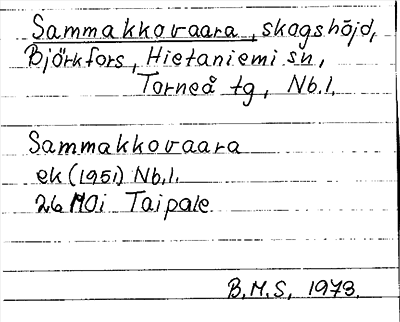 Sammakkovaara, skogshöjd,
Björkfors, Hietaniemi sn,
Torneå tg, Nb.l.
Sammakkovaara
ek (1951) Nb.l.
26 M0i Taipale
B.M.S, 1973.